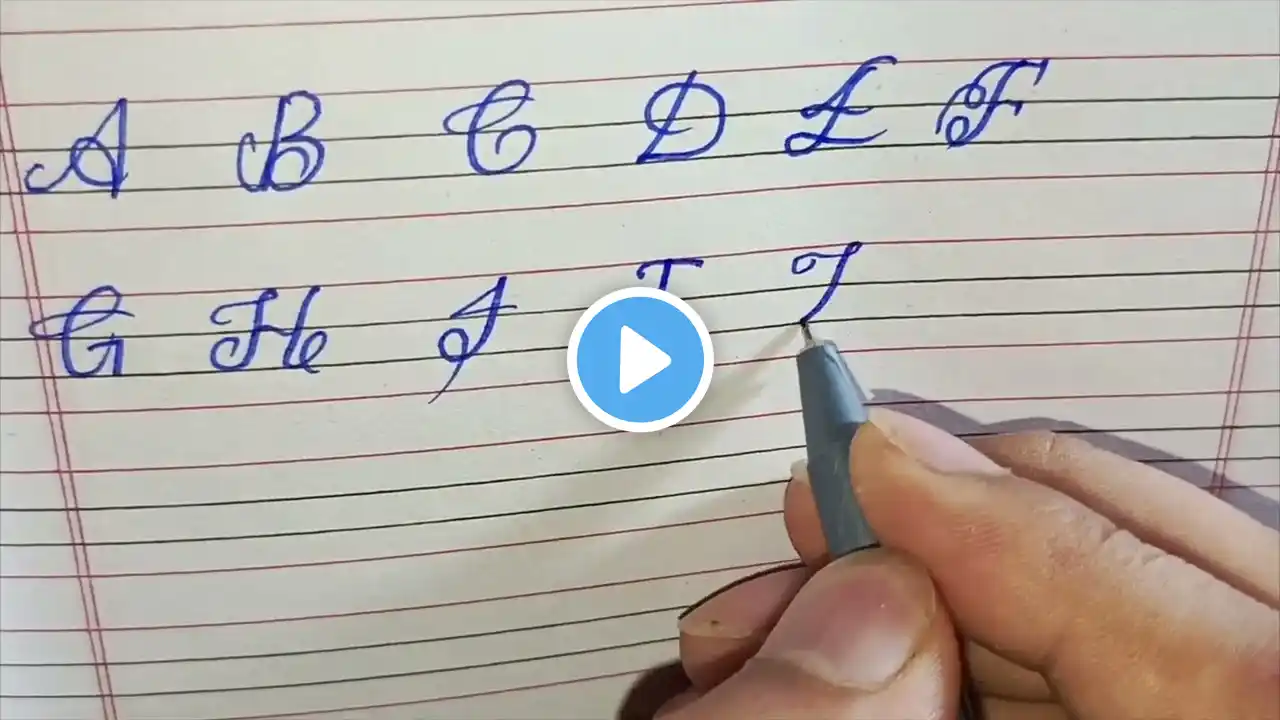 A B C D E F
G H I